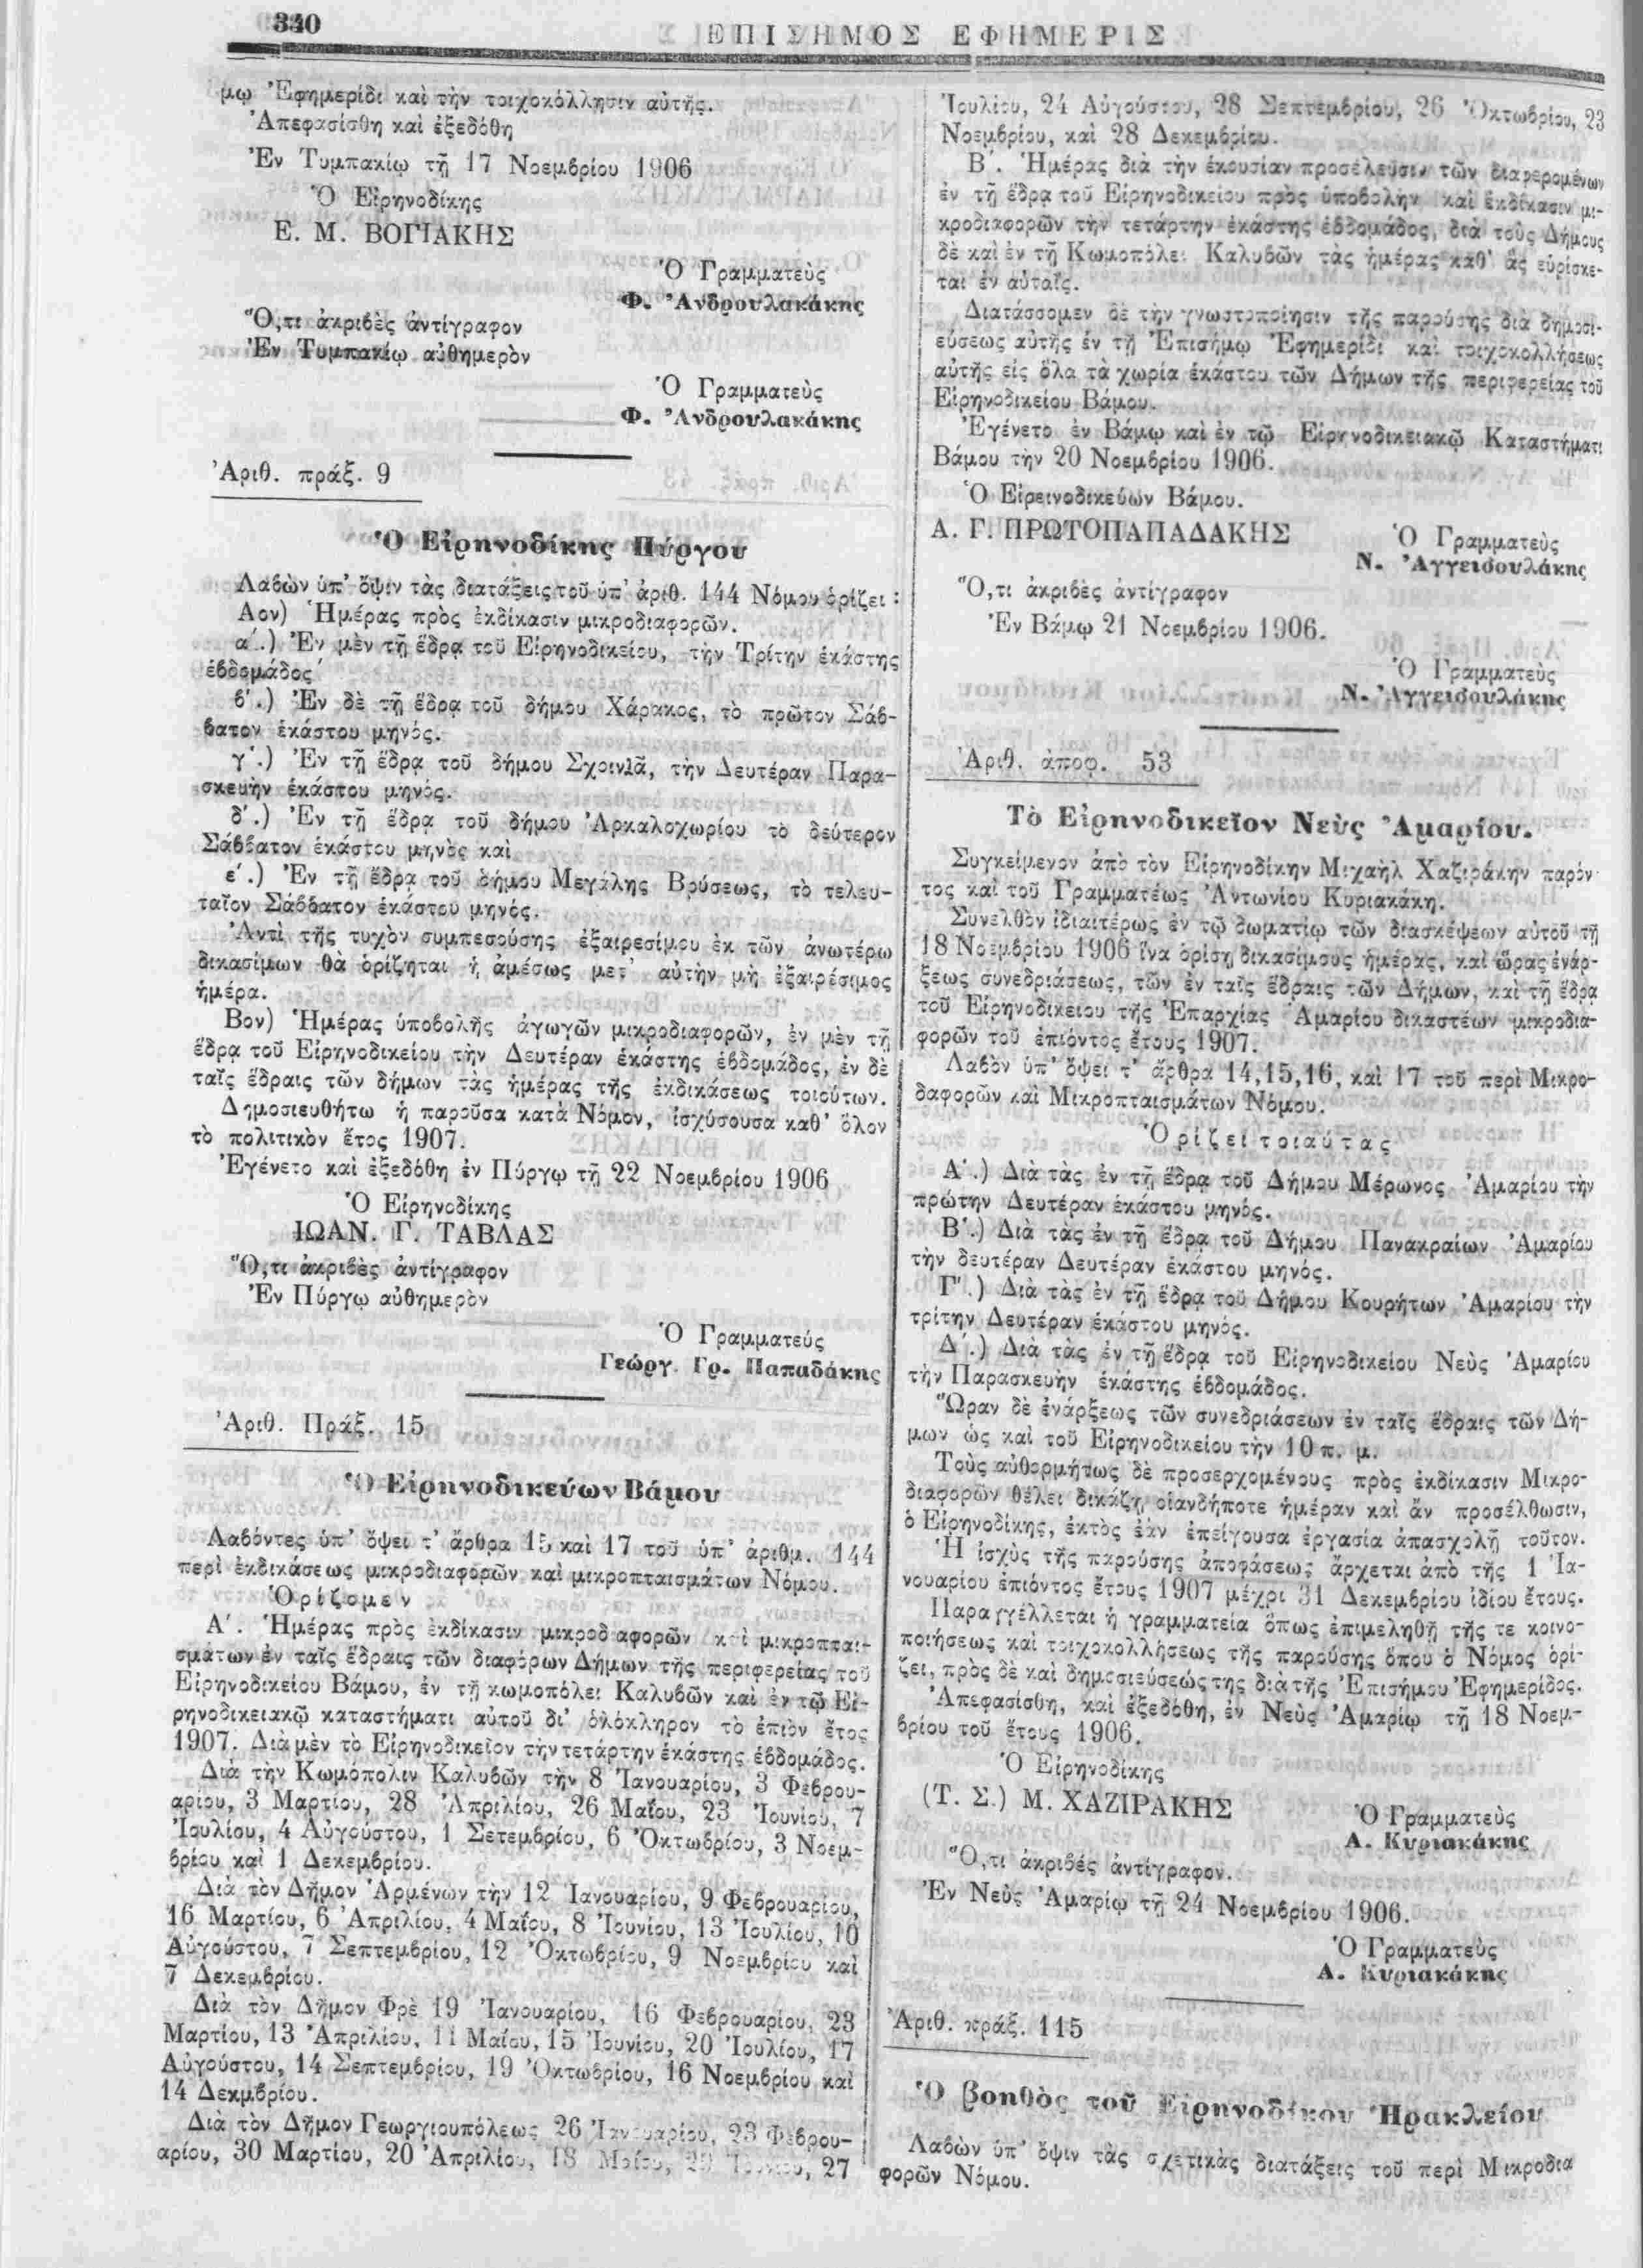 340
ΕΠΙΣΗΜΟΣ ΕΦΗΜΕΡΙΣ
μῳ Ἐφημερίδι καὶ τὴν τοιχοκόλλησιν αὐτῆς.
Ἀπεφασίσθη καὶ ἐξεδόθη
Ἐν Τυμπακίῳ τῇ 17 Νοεμβρίου 1906
Ὁ Εἰρηνοδίκης
Ε. Μ. ΒΟΓΙΑΚΗΣ
Ὁ Γραμματεὺς
Φ. Ἀνδρουλακάκης
Ὅ,τι ἀκριβὲς ἀντίγραφον
Ἐν Τυμπακίῳ αὐθημερὸν
Ὁ Γραμματεὺς
Φ. Ἀνδρουλακάκης
Ἀριθ. πράξ. 9
Ὁ Εἰρηνοδίκης Πύργου
Λαβὼν ὑπ' ὄψιν τὰς διατάξεις τοῦ ὑπ' ἀριθ. 144 Νόμου ὁρίζει :
Αον) Ἡμέρας πρὸς ἐκδίκασιν μικροδιαφορῶν.
α'.) Ἐν μὲν τῇ ἕδρᾳ τοῦ Εἰρηνοδικείου, τὴν Τρίτην ἑκάστης
ἑβδομάδος
β'.) Ἐν δὲ τῇ ἕδρᾳ τοῦ δήμου Χάρακος, τὸ πρῶτον Σάβ-
βατον ἑκάστου μηνός.
γ'.) Ἐν τῇ ἕδρᾳ τοῦ δήμου Σχοινιᾶ, τὴν Δευτέραν Παρα-
σκευὴν ἑκάστου μηνός.
δ'.) Ἐν τῇ ἕδρᾳ τοῦ δήμου Ἀρκαλοχωρίου τὸ δεύτερον
Σάββατον ἑκάστου μηνὸς καὶ
ε'.) Ἐν τῇ ἕδρᾳ τοῦ δήμου Μεγάλης Βρύσεως, τὸ τελευ-
ταῖον Σάββατον ἑκάστου μηνός.
Ἀντὶ τῆς τυχὸν συμπεσούσης ἐξαιρεσίμου ἐκ τῶν ἀνωτέρω
δικασίμων θὰ ὁρίζηται ἡ ἀμέσως μετ' αὐτὴν μὴ ἐξαιρέσιμος
ἡμέρα.
Βον) Ἡμέρας ὑποβολῆς ἀγωγῶν μικροδιαφορῶν, ἐν μὲν τῇ
ἕδρᾳ τοῦ Εἰρηνοδικείου τὴν Δευτέραν ἑκάστης ἑβδομάδος, ἐν δὲ
ταῖς ἕδραις τῶν δήμων τὰς ἡμέρας τῆς ἐκδικάσεως τοιούτων.
Δημοσιευθήτω ἡ παροῦσα κατὰ Νόμον, ἰσχύσουσα καθ' ὅλον
τὸ πολιτικὸν ἔτος 1907.
Ἐγένετο καὶ ἐξεδόθη ἐν Πύργῳ τῇ 22 Νοεμβρίου 1906
Ὁ Εἰρηνοδίκης
ΙΩΑΝ. Γ. ΤΑΒΛΑΣ
Ὅ,τι ἀκριβὲς ἀντίγραφον
Ἐν Πύργῳ αὐθημερὸν
Ὁ Γραμματεύς
Γεώργ. Γρ. Παπαδάκης
Ἀριθ. Πράξ. 15
Ὁ Εἰρηνοδικεύων Βάμου
Λαβόντες ὑπ' ὄψει τ' ἄρθρα 15 καὶ 17 τοῦ ὑπ' ἀριθμ. 144
περὶ ἐκδικάσεως μικροδιαφορῶν καὶ μικροπταισμάτων Νόμου.
Ὁρίζομεν
Α'. Ἡμέρας πρὸς ἐκδίκασιν μικροδιαφορῶν καὶ μικροπται-
σμάτων ἐν ταῖς ἕδραις τῶν διαφόρων Δήμων τῆς περιφερείας τοῦ
Εἰρηνοδικείου Βάμου, ἐν τῇ κωμοπόλει Καλυβῶν καὶ ἐν τῷ Εἰ-
ρηνοδικειακῷ καταστήματι αὐτοῦ δι' ὁλόκληρον τὸ ἐπιὸν ἔτος
1907. Διὰ μὲν τὸ Εἰρηνοδικεῖον τὴν τετάρτην ἑκάστης ἑβδομάδος.
Διὰ τὴν Κωμόπολιν Καλυβῶν τὴν 8 Ἰανουαρίου, 3 Φεβρου-
αρίου, 3 Μαρτίου, 28 Ἀπριλίου, 26 Μαΐου, 23 Ἰουνίου, 7
Ἰουλίου, 4 Αὐγούστου, 1 Σετεμβρίου, 6 Ὀκτωβρίου, 3 Νοεμ-
βρίου καὶ 1 Δεκεμβρίου.
Διὰ τὸν Δῆμον Ἀρμένων τὴν 12 Ἰανουαρίου, 9 Φεβρουαρίου,
16 Μαρτίου, 6 Ἀπριλίου, 4 Μαΐου, 8 Ἰουνίου, 13 Ἰουλίου, 10
Αὐγούστου, 7 Σεπτεμβρίου, 12 Ὀκτωβρίου, 9 Νοεμβρίου καὶ
7 Δεκεμβρίου.
Διὰ τὸν Δῆμον Φρὲ 19 Ἰανουαρίου, 16 Φεβρουαρίου, 23
Μαρτίου, 13 Ἀπριλίου, 11 Μαΐου, 15 Ἰουνίου, 20 Ἰουλίου, 17
Αὐγούστου, 14 Σεπτεμβρίου, 19 Ὀκτωβρίου, 16 Νοεμβρίου καὶ
14 Δεκμβρίου.
Διὰ τὸν Δῆμον Γεωργιουπόλεως 26 Ἰανουαρίου, 23 Φεβρου-
αρίου, 30 Μαρτίου, 20 Ἀπριλίου, 18 Μαΐου, Ἰουνίου, 27
Ἰουλίου, 24 Αὐγούστου, 28 Σεπτεμβρίου, 26 Ὀκτωβρίου, 23
Νοεμβρίου, καὶ 28 Δεκεμβρίου.
Β'. Ἡμέρας διὰ τὴν ἑκουσίαν προσέλευσιν τῶν διαφερομένων
ἐν τῇ ἕδρᾳ τοῦ Εἰρηνοδικείου πρὸς ὑποβολὴν καὶ ἐκδίκασιν μι-
κροδιαφορῶν τὴν τετάρτην ἑκάστης ἑβδομάδος, διὰ τοὺς Δήμους
δὲ καὶ ἐν τῇ Κωμοπόλει Καλυβῶν τὰς ἡμέρας καθ' ἃς εὑρίσκε-
ται ἐν αὐταῖς.
Διατάσσομεν δὲ τὴν γνωστοποίησιν τῆς παρούσης διὰ δημοσι-
εύσεως αὐτῆς ἐν τῇ Ἐπισήμῳ Ἐφημερίδι καὶ τοιχοκολλήσεως
αὐτῆς εἰς ὅλα τὰ χωρία ἑκάστου τῶν Δήμων τῆς περιφερείας τοῦ
Εἰρηνοδικείου Βάμου.
Ἐγένετο ἐν Βάμῳ καὶ ἐν τῷ Εἰρηνοδικειακῷ Καταστήματι
Βάμου τὴν 20 Νοεμβρίου 1906.
Ὁ Εἰρεινοδικεύων Βάμου.
Α. Γ. ΠΡΩΤΟΠΑΠΑΔΑΚΗΣ
Ὁ Γραμματεὺς
Ν. Ἀγγειδουλάκης
Ὅ,τι ἀκριβὲς ἀντίγραφον
Ἐν Βάμῳ 21 Νοεμβρίου 1906.
Ὁ Γραμματεὺς
Ν. Ἀγγειδουλάκης
Ἀριθ. ἀποφ. 53
Τὸ Εἰρηνοδικεῖον Νεὺς Ἀμαρίου.
Συγκείμενον ἀπὸ τὸν Εἰρηνοδίκην Μιχαὴλ Χαζιράκην παρόν
τος καὶ τοῦ Γραμματέως Ἀντωνίου Κυριακάκη.
Συνελθὸν ἰδιαιτέρως ἐν τῷ δωματίῳ τῶν διασκέψεων αὐτοῦ τῇ
18 Νοεμβρίου 1906 ἵνα ὁρίσῃ δικασίμους ἡμέρας, καὶ ὥρας ἐνάρ-
ξεως συνεδριάσεως, τῶν ἐν ταῖς ἕδραις τῶν Δήμων, καὶ τῇ ἕδρᾳ
τοῦ Εἰρηνοδικείου τῆς Ἐπαρχίας Ἀμαρίου δικαστέων μικροδια-
φορῶν τοῦ ἐπιόντος ἔτους 1907.
Λαβὸν ὑπ' ὄψει τ' ἄρθρα 14,15,16, καὶ 17 τοῦ περὶ Μικρο-
δαφορῶν καὶ Μικροπταισμάτων Νόμου.
Ὁρίζει τοιαύτας
Α'.) Διὰ τὰς ἐν τῇ ἕδρᾳ τοῦ Δήμου Μέρωνος Ἀμαρίου τὴν
πρώτην Δευτέραν ἑκάστου μηνός.
Β'.) Διὰ τὰς ἐν τῇ ἕδρᾳ τοῦ Δήμου Πανακραίων Ἀμαρίου
τὴν δευτέραν Δευτέραν ἑκάστου μηνός.
Γ'.) Διὰ τὰς ἐν τῇ ἕδρᾳ τοῦ Δήμου Κουρήτων Ἀμαρίου τὴν
τρίτην Δευτέραν ἑκάστου μηνός.
Δ'.) Διὰ τὰς ἐν τῇ ἕδρᾳ τοῦ Εἰρηνοδικείου Νεὺς Ἀμαρίου
τὴν Παρασκευὴν ἑκάστης ἑβδομάδος.
Ὥραν δὲ ἐνάρξεως τῶν συνεδριάσεων ἐν ταῖς ἕδραις τῶν Δή-
μων ὡς καὶ τοῦ Εἰρηνοδικείου τὴν 10 π. μ.
Τοὺς αὐθορμήτως δὲ προσερχομένους πρὸς ἐκδίκασιν Μικρο-
διαφορῶν θέλει δικάζῃ οἱανδήποτε ἡμέραν καὶ ἂν προσέλθωσιν,
ὁ Εἰρηνοδίκης, ἐκτὸς ἐὰν ἐπείγουσα ἐργασία ἀπασχολῇ τοῦτον.
Ἡ ἰσχὺς τῆς παρούσης ἀποφάσεως ἄρχεται ἀπὸ τῆς 1 Ἰα-
νουαρίου ἐπιόντος ἔτους 1907 μέχρι 31 Δεκεμβρίου ἰδίου ἔτους.
Παραγγέλλεται ἡ γραμματεία ὅπως ἐπιμεληθῇ τῆς τε κοινο-
ποιήσεως καὶ τοιχοκολλήσεως τῆς παρούσης ὅπου ὁ Νόμος ὁρί-
ζει, πρὸς δὲ καὶ δημοσιεύσεώς της διὰ τῆς Ἐπισήμου Ἐφημερίδος.
Ἀπεφασίσθη, καὶ ἐξεδόθη, ἐν Νεὺς Ἀμαρίῳ τῇ 18 Νοεμ-
βρίου τοῦ ἔτους 1906.
Ὁ Εἰρηνοδίκης
(Τ. Σ.) Μ. ΧΑΖΙΡΑΚΗΣ
Ὁ Γραμματεὺς
Α. Κυριακάκης
Ὅ,τι ἀκριβές ἀντίγραφον.
Ἐν Νεὺς Ἀμαρίῳ τῇ 24 Νοεμβρίου 1906.
Ὁ Γραμματεὺς
Α. Κυριακάκης
Ἀριθ. πράξ. 115
Ὁ βοηθὸς τοῦ Εἰρηνοδίκου Ἡρακλείου
Λαβὼν ὑπ' ὄψιν τὰς σχετικὰς διατάξεις τοῦ περὶ Μικροδια
φορῶν Νόμου.